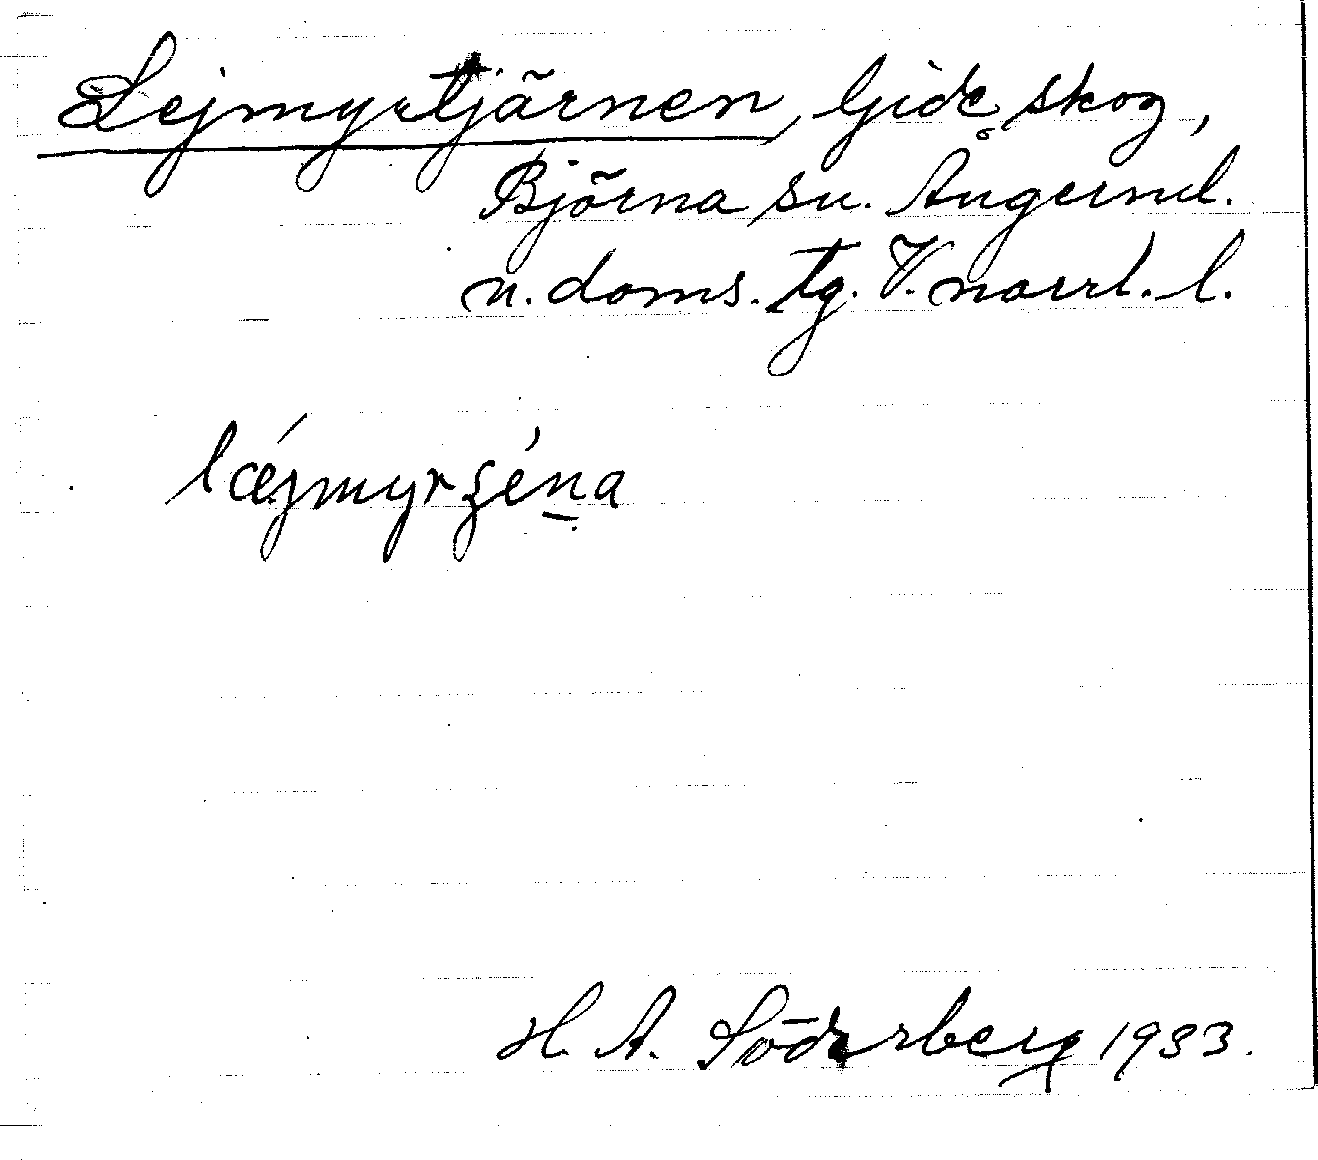 Lejmyrtjärnen, Gide skog,
Björna sn. Ångerml.
n. doms. tg. V. norrl. l.
læ´jmyrʒé̱na
H. A. Söderberg 1933.